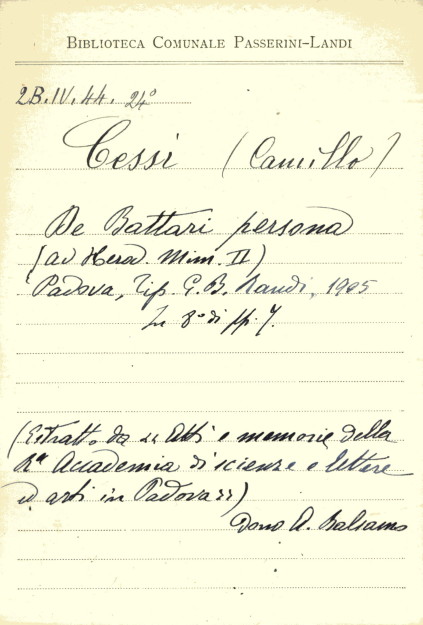 BIBLIOTECA COMUNALE PASSERINI-LANDI
2B.IV.44. 24°
Cessi (Camillo)
De Battari persona
(ad Herod. Mim. II)
Padova, Tip. G. B. Randi, 1905
In 8° di pp. 7.
(Estratto da «Atti e memorie della
R.ª Accademia di scienze e lettere
ed arti in Padova»)
Dono A. Balsamo